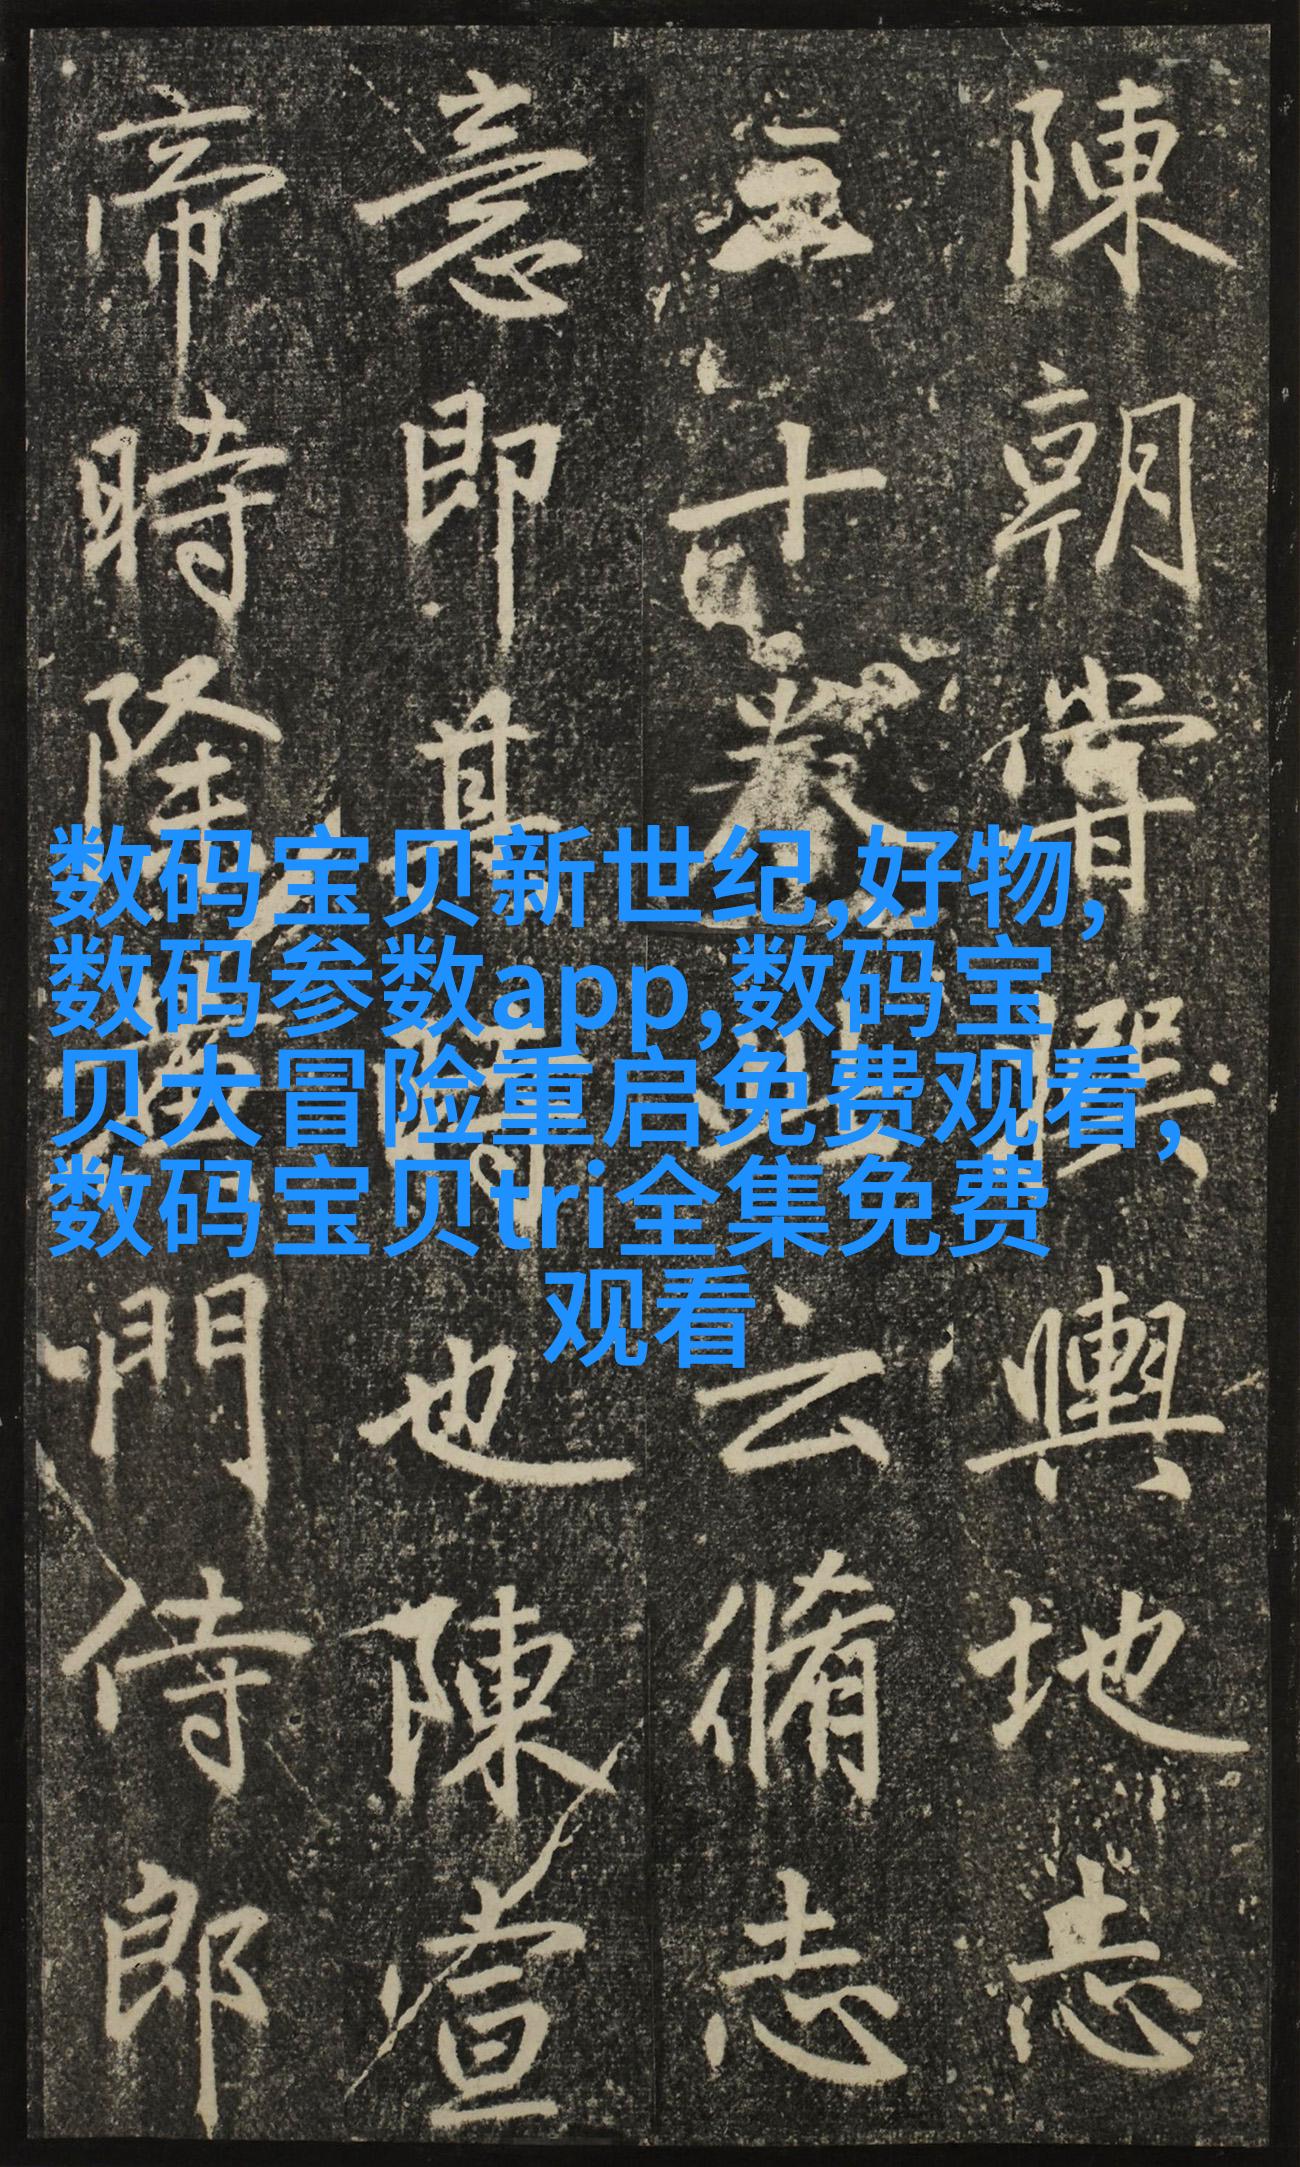 陳朝嘗撰輿地志
三十卷此云脩志
意即其時也陳宣
帝時陸黃門侍郎
数码宝贝新世纪,好物,
数码参数app,数码宝
贝大冒险重启免费观看,
数码宝贝tri全集免费
观看